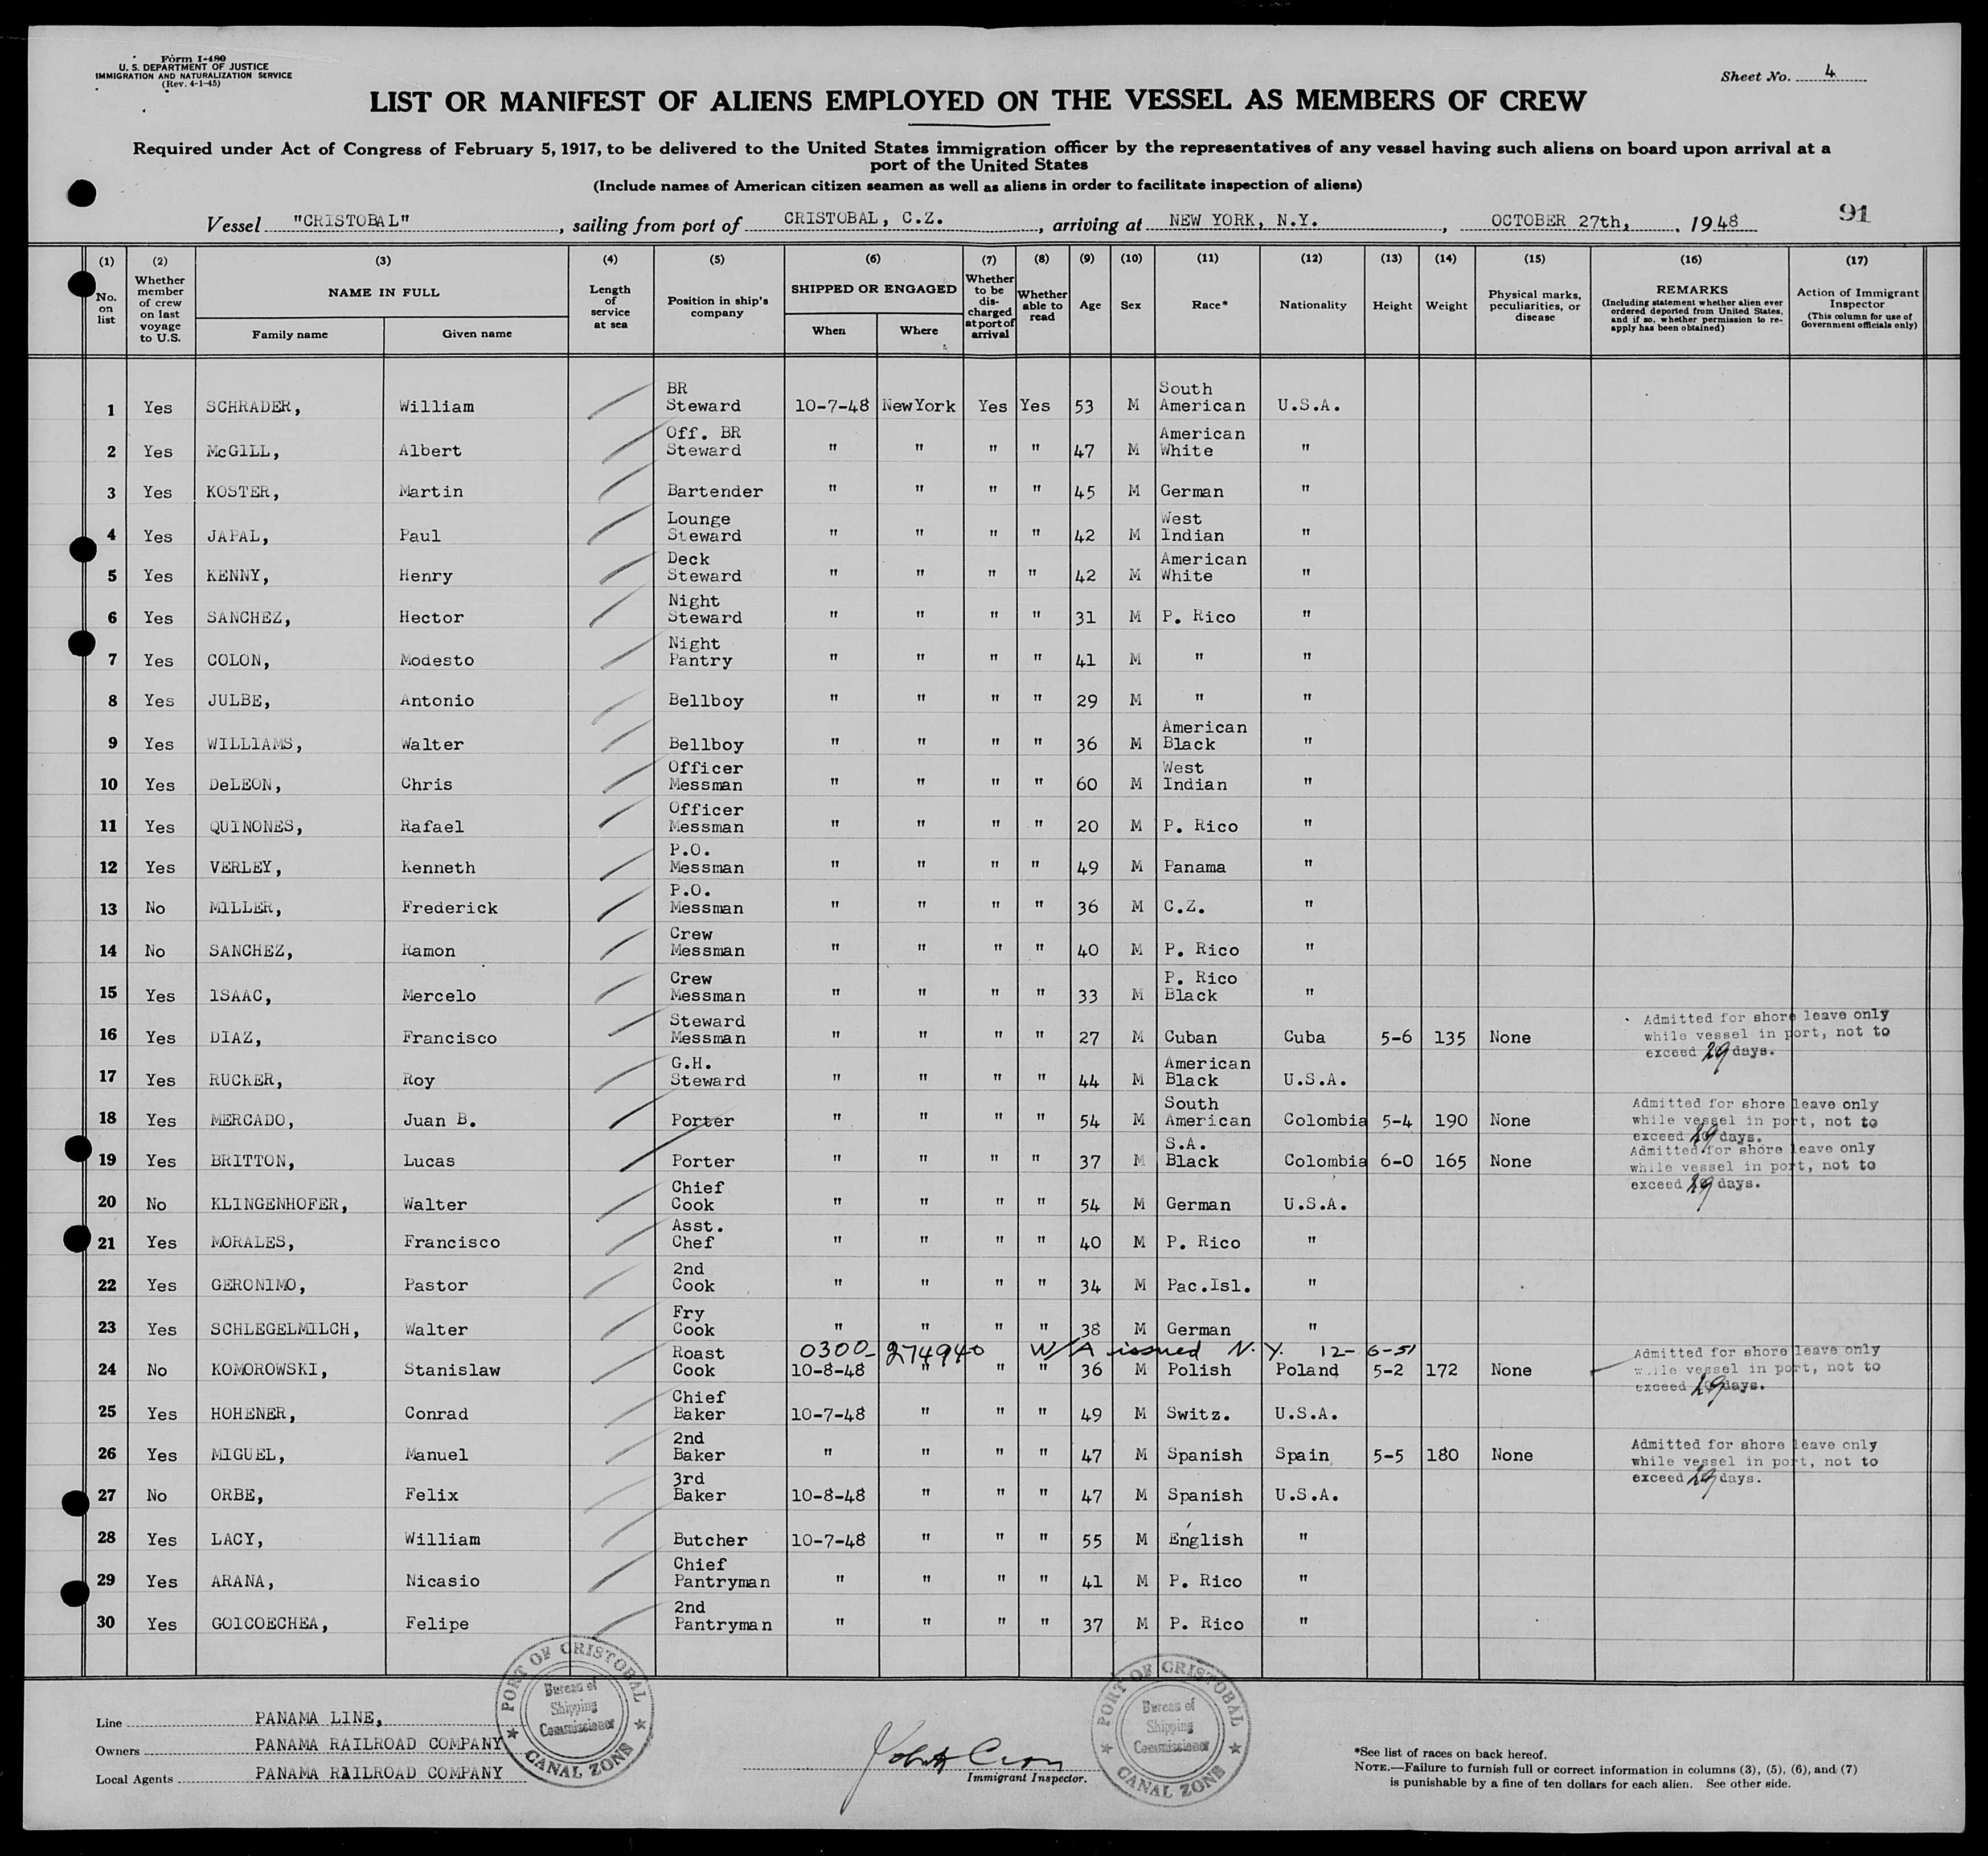 Form I-480
U. S. DEPARTMENT OF JUSTICE
IMMIGRATION AND NATURALIZATION SERVICE
(Rev. 4-1-45)
Sheet No. 4
LIST OR MANIFEST OF ALIENS EMPLOYED ON THE VESSEL AS MEMBERS OF CREW
Required under Act of Congress of February 5, 1917, to be delivered to the United States immigration officer by the representatives of any vessel having such aliens on board upon arrival at a
port of the United States
(Include names of American citizen seamen as well as aliens in order to facilitate inspection of aliens)
Vessel "CRISTOBAL", sailing from port of CRISTOBAL, C.Z., arriving at NEW YORK, N.Y., OCTOBER 27th, 1948
91
(1) No. on list
(2) Whether member of crew on last voyage to U.S.
(3) NAME IN FULL Family name Given name
(4) Length of service at sea
(5) Position in ship's company
(6) SHIPPED OR ENGAGED When Where
(7) Whether to be discharged at port of arrival
(8) Whether able to read
(9) Age
(10) Sex
(11) Race*
(12) Nationality
(13) Height
(14) Weight
(15) Physical marks, peculiarities, or disease
(16) REMARKS (Including statement whether alien ever ordered deported from United States, and if so, whether permission to re-apply has been obtained)
(17) Action of Immigrant Inspector (This column for use of Government officials only)
1 Yes SCHRADER, William BR Steward 10-7-48 NewYork Yes Yes 53 M South American U.S.A.
2 Yes McGILL, Albert Off. BR Steward " " " " 47 M American White "
3 Yes KOSTER, Martin Bartender " " " " 45 M German "
4 Yes JAPAL, Paul Lounge Steward " " " " 42 M West Indian "
5 Yes KENNY, Henry Deck Steward " " " " 42 M American White "
6 Yes SANCHEZ, Hector Night Steward " " " " 31 M P. Rico "
7 Yes COLON, Modesto Night Pantry " " " " 41 M " "
8 Yes JULBE, Antonio Bellboy " " " " 29 M " "
9 Yes WILLIAMS, Walter Bellboy " " " " 36 M American Black "
10 Yes DeLEON, Chris Officer Messman " " " " 60 M West Indian "
11 Yes QUINONES, Rafael Officer Messman " " " " 20 M P. Rico "
12 Yes VERLEY, Kenneth P.O. Messman " " " " 49 M Panama "
13 No MILLER, Frederick P.O. Messman " " " " 36 M C.Z. "
14 No SANCHEZ, Ramon Crew Messman " " " " 40 M P. Rico "
15 Yes ISAAC, Mercelo Crew Messman " " " " 33 M P. Rico Black "
16 Yes DIAZ, Francisco Steward Messman " " " " 27 M Cuban Cuba 5-6 135 None Admitted for shore leave only while vessel in port, not to exceed 29 days.
17 Yes RUCKER, Roy G.H. Steward " " " " 44 M American Black U.S.A.
18 Yes MERCADO, Juan B. Porter " " " " 54 M South American Colombia 5-4 190 None Admitted for shore leave only while vessel in port, not to exceed 29 days.
19 Yes BRITTON, Lucas Porter " " " " 37 M S.A. Black Colombia 6-0 165 None Admitted for shore leave only while vessel in port, not to exceed 29 days.
20 No KLINGENHOFER, Walter Chief Cook " " " " 54 M German U.S.A.
21 Yes MORALES, Francisco Asst. Chef " " " " 40 M P. Rico "
22 Yes GERONIMO, Pastor 2nd Cook " " " " 34 M Pac.Isl. "
23 Yes SCHLEGELMILCH, Walter Fry Cook " " " " 38 M German "
0300-274940 W/A issued N.Y. 12-6-51
24 No KOMOROWSKI, Stanislaw Roast Cook 10-8-48 " " " 36 M Polish Poland 5-2 172 None Admitted for shore leave only while vessel in port, not to exceed 29 days.
25 Yes HOHENER, Conrad Chief Baker 10-7-48 " " " 49 M Switz. U.S.A.
26 Yes MIGUEL, Manuel 2nd Baker " " " " 47 M Spanish Spain 5-5 180 None Admitted for shore leave only while vessel in port, not to exceed 29 days.
27 No ORBE, Felix 3rd Baker 10-8-48 " " " 47 M Spanish U.S.A.
28 Yes LACY, William Butcher 10-7-48 " " " 55 M English "
29 Yes ARANA, Nicasio Chief Pantryman " " " " 41 M P. Rico "
30 Yes GOICOECHEA, Felipe 2nd Pantryman " " " " 37 M P. Rico "
Line PANAMA LINE,
Owners PANAMA RAILROAD COMPANY
Local Agents PANAMA RAILROAD COMPANY
PORT OF CRISTOBAL
Bureau of
Shipping
Commissioner
CANAL ZONE
Immigrant Inspector.
PORT OF CRISTOBAL
Bureau of
Shipping
Commissioner
CANAL ZONE
*See list of races on back hereof.
NOTE.—Failure to furnish full or correct information in columns (3), (5), (6), and (7)
is punishable by a fine of ten dollars for each alien. See other side.